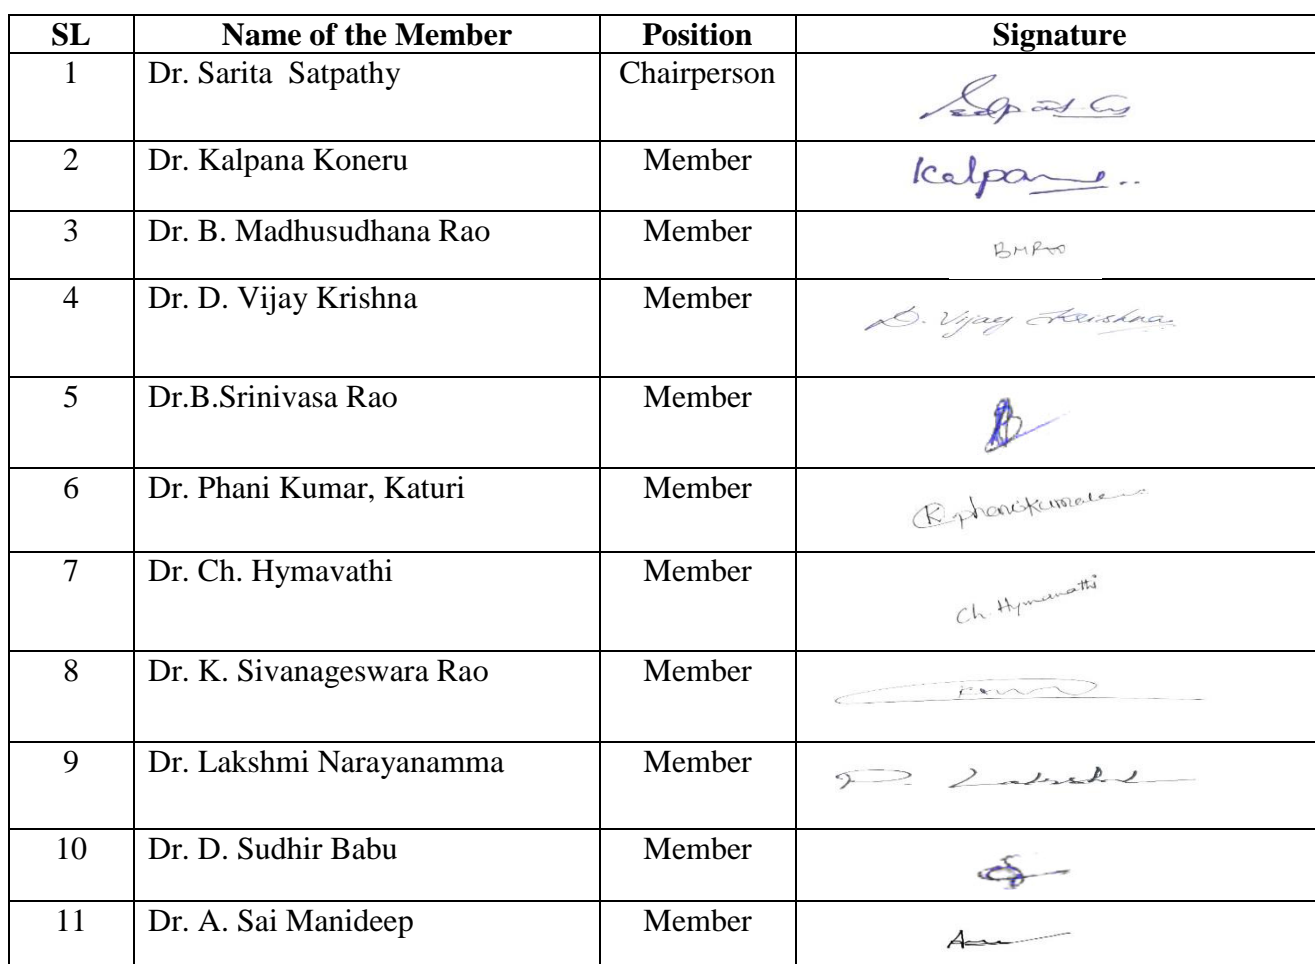 SL Name of the Member Position Signature
1 Dr. Sarita Satpathy Chairperson
2 Dr. Kalpana Koneru Member Kalpana
3 Dr. B. Madhusudhana Rao Member BMRao
4 Dr. D. Vijay Krishna Member D. Vijay Krishna
5 Dr.B.Srinivasa Rao Member
6 Dr. Phani Kumar, Katuri Member K. phanikumar
7 Dr. Ch. Hymavathi Member Ch. Hymavathi
8 Dr. K. Sivanageswara Rao Member
9 Dr. Lakshmi Narayanamma Member
10 Dr. D. Sudhir Babu Member
11 Dr. A. Sai Manideep Member